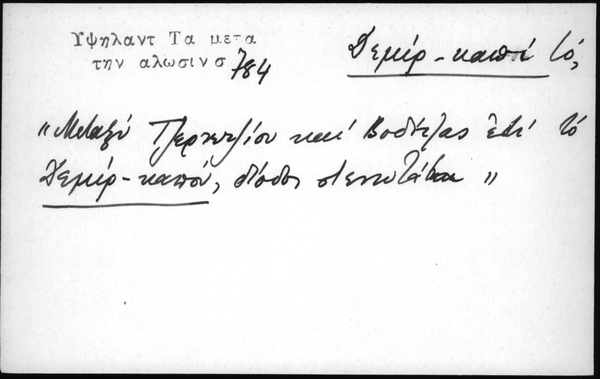 Υψηλαντ Τα μετα
την αλωσιν σ 784
Δεμίρ-καπί τό,
"Μεταξύ καί Βοδίνας ἐστί τό
Δεμίρ-καπού, δίοδος στενωτάτη"